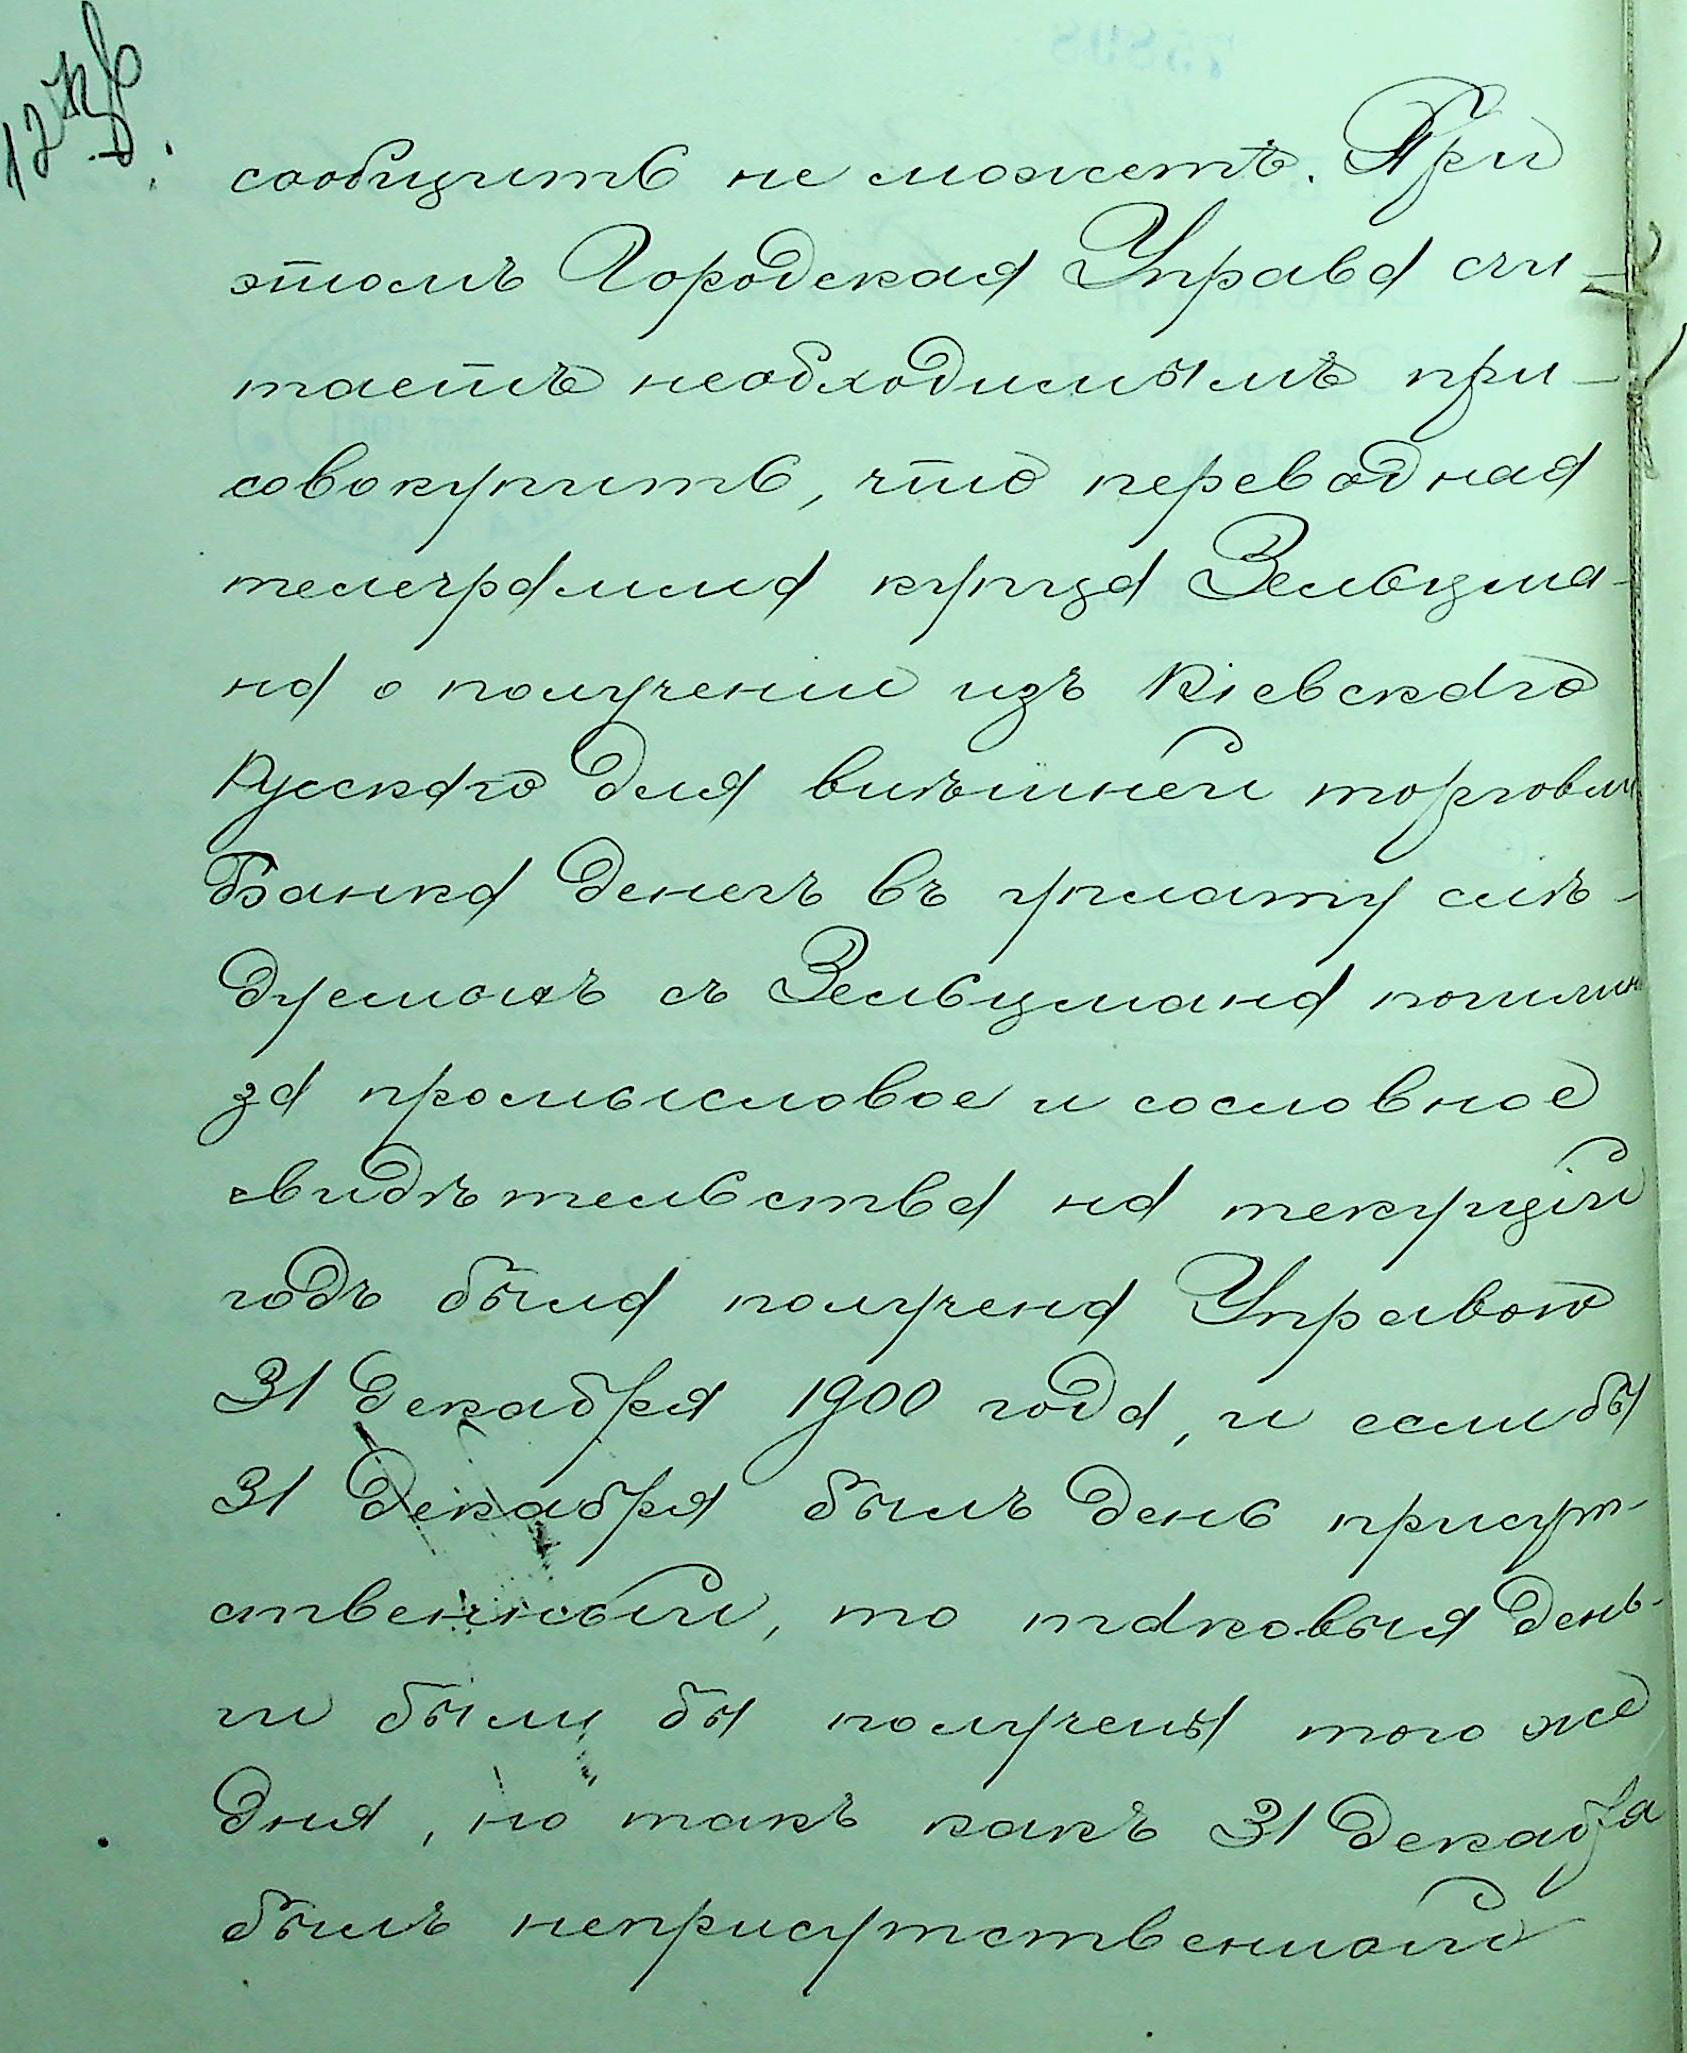 сообщить не можетъ. При
этомъ Городская Управа счи-
таетъ необходимымъ при-
совокупить, что переводная
телеграмма купца Зельцма-
на о полученіи изъ Кіевскаго
Русскаго для внѣшней торговли
Банка денегъ въ уплату слѣ-
дуемыхъ съ Зельцмана пошлинъ
за промысловое и сословное
свидѣтельства на текущій
годъ была получена Управою
31 декабря 1900 года, и если бы
31 декабря былъ день присут-
ственный, то таковыя день-
ги были бы получены того же
дня, но такъ какъ 31 декабря
былъ неприсутственный